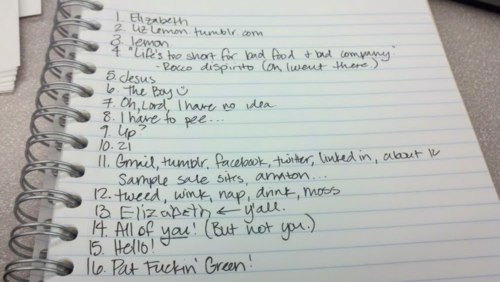 1. Elizabeth
2. LizLemon.tumblr.com
3. lemon
4. "Life's too short for bad food + bad company"
- Rocco dispirito (oh I went there)
5. Jesus
6. The Boy
7. Oh, Lord, I have no idea
8. I have to pee...
9. Up?
10. 21
11. Gmail, tumblr, facebook, twitter, linked in, about 12
Sample sale sites, ...
12. tweed, wink, nap, drink, moss
13. Elizabeth ← y'all.
14. All of you! (But not you.)
15. Hello!
16. Pat Fuckin' Green!